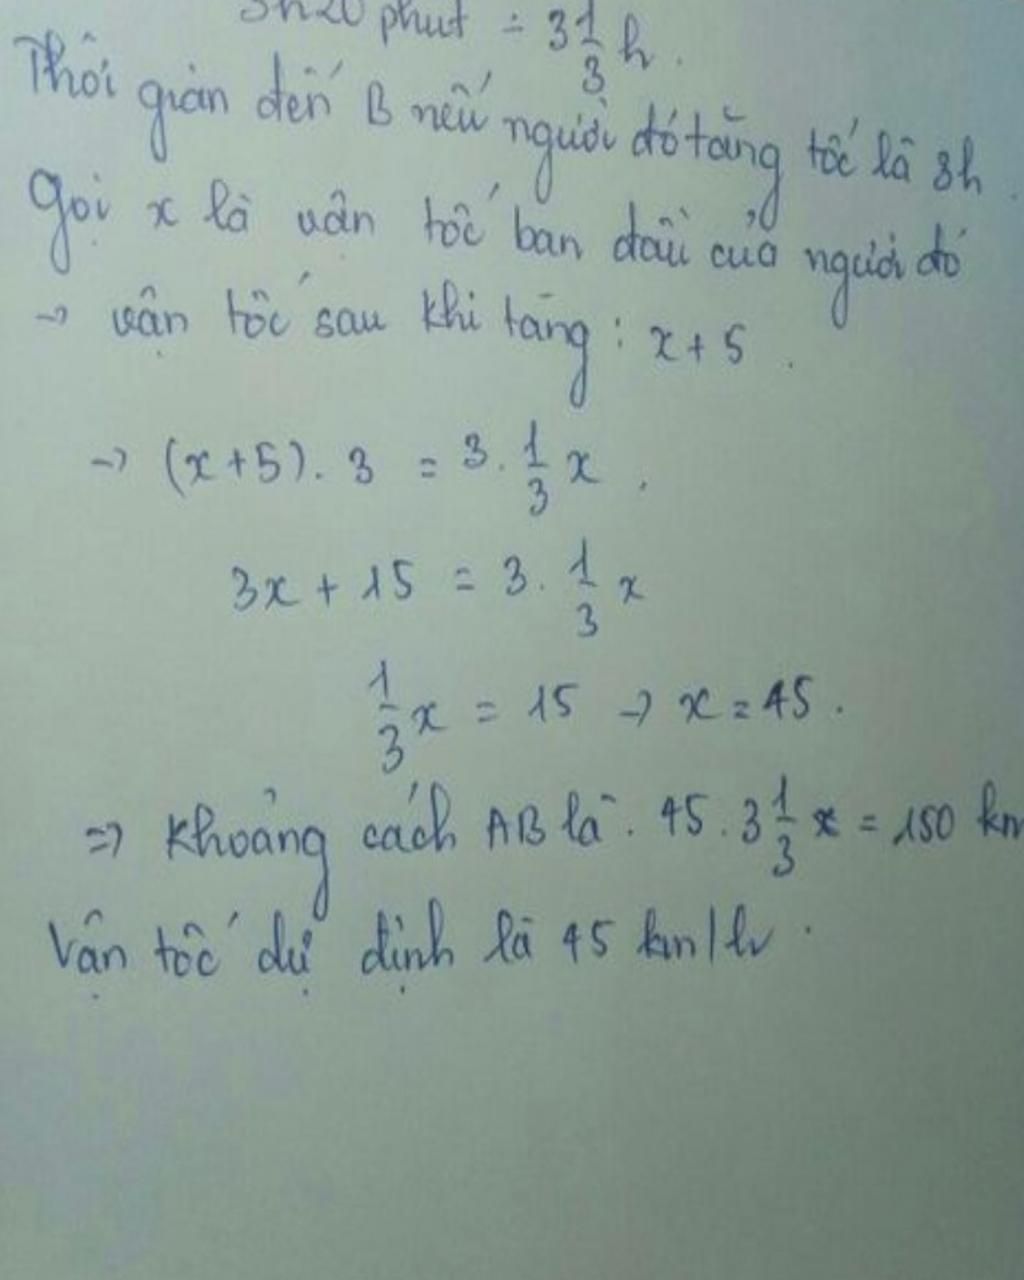 3h20 phút = 3 1/3 h.
Thời gian đến B nếu người đó tăng tốc là 3h.
Gọi x là vận tốc ban đầu của người đó
→ vận tốc sau khi tăng: x + 5.
→ (x+5). 3 = 3. 1/3 x.
3x + 15 = 3. 1/3 x
1/3 x = 15 → x = 45.
=> Khoảng cách AB là. 45. 3 1/3 x = 150 km
Vận tốc dự định là 45 km/h.